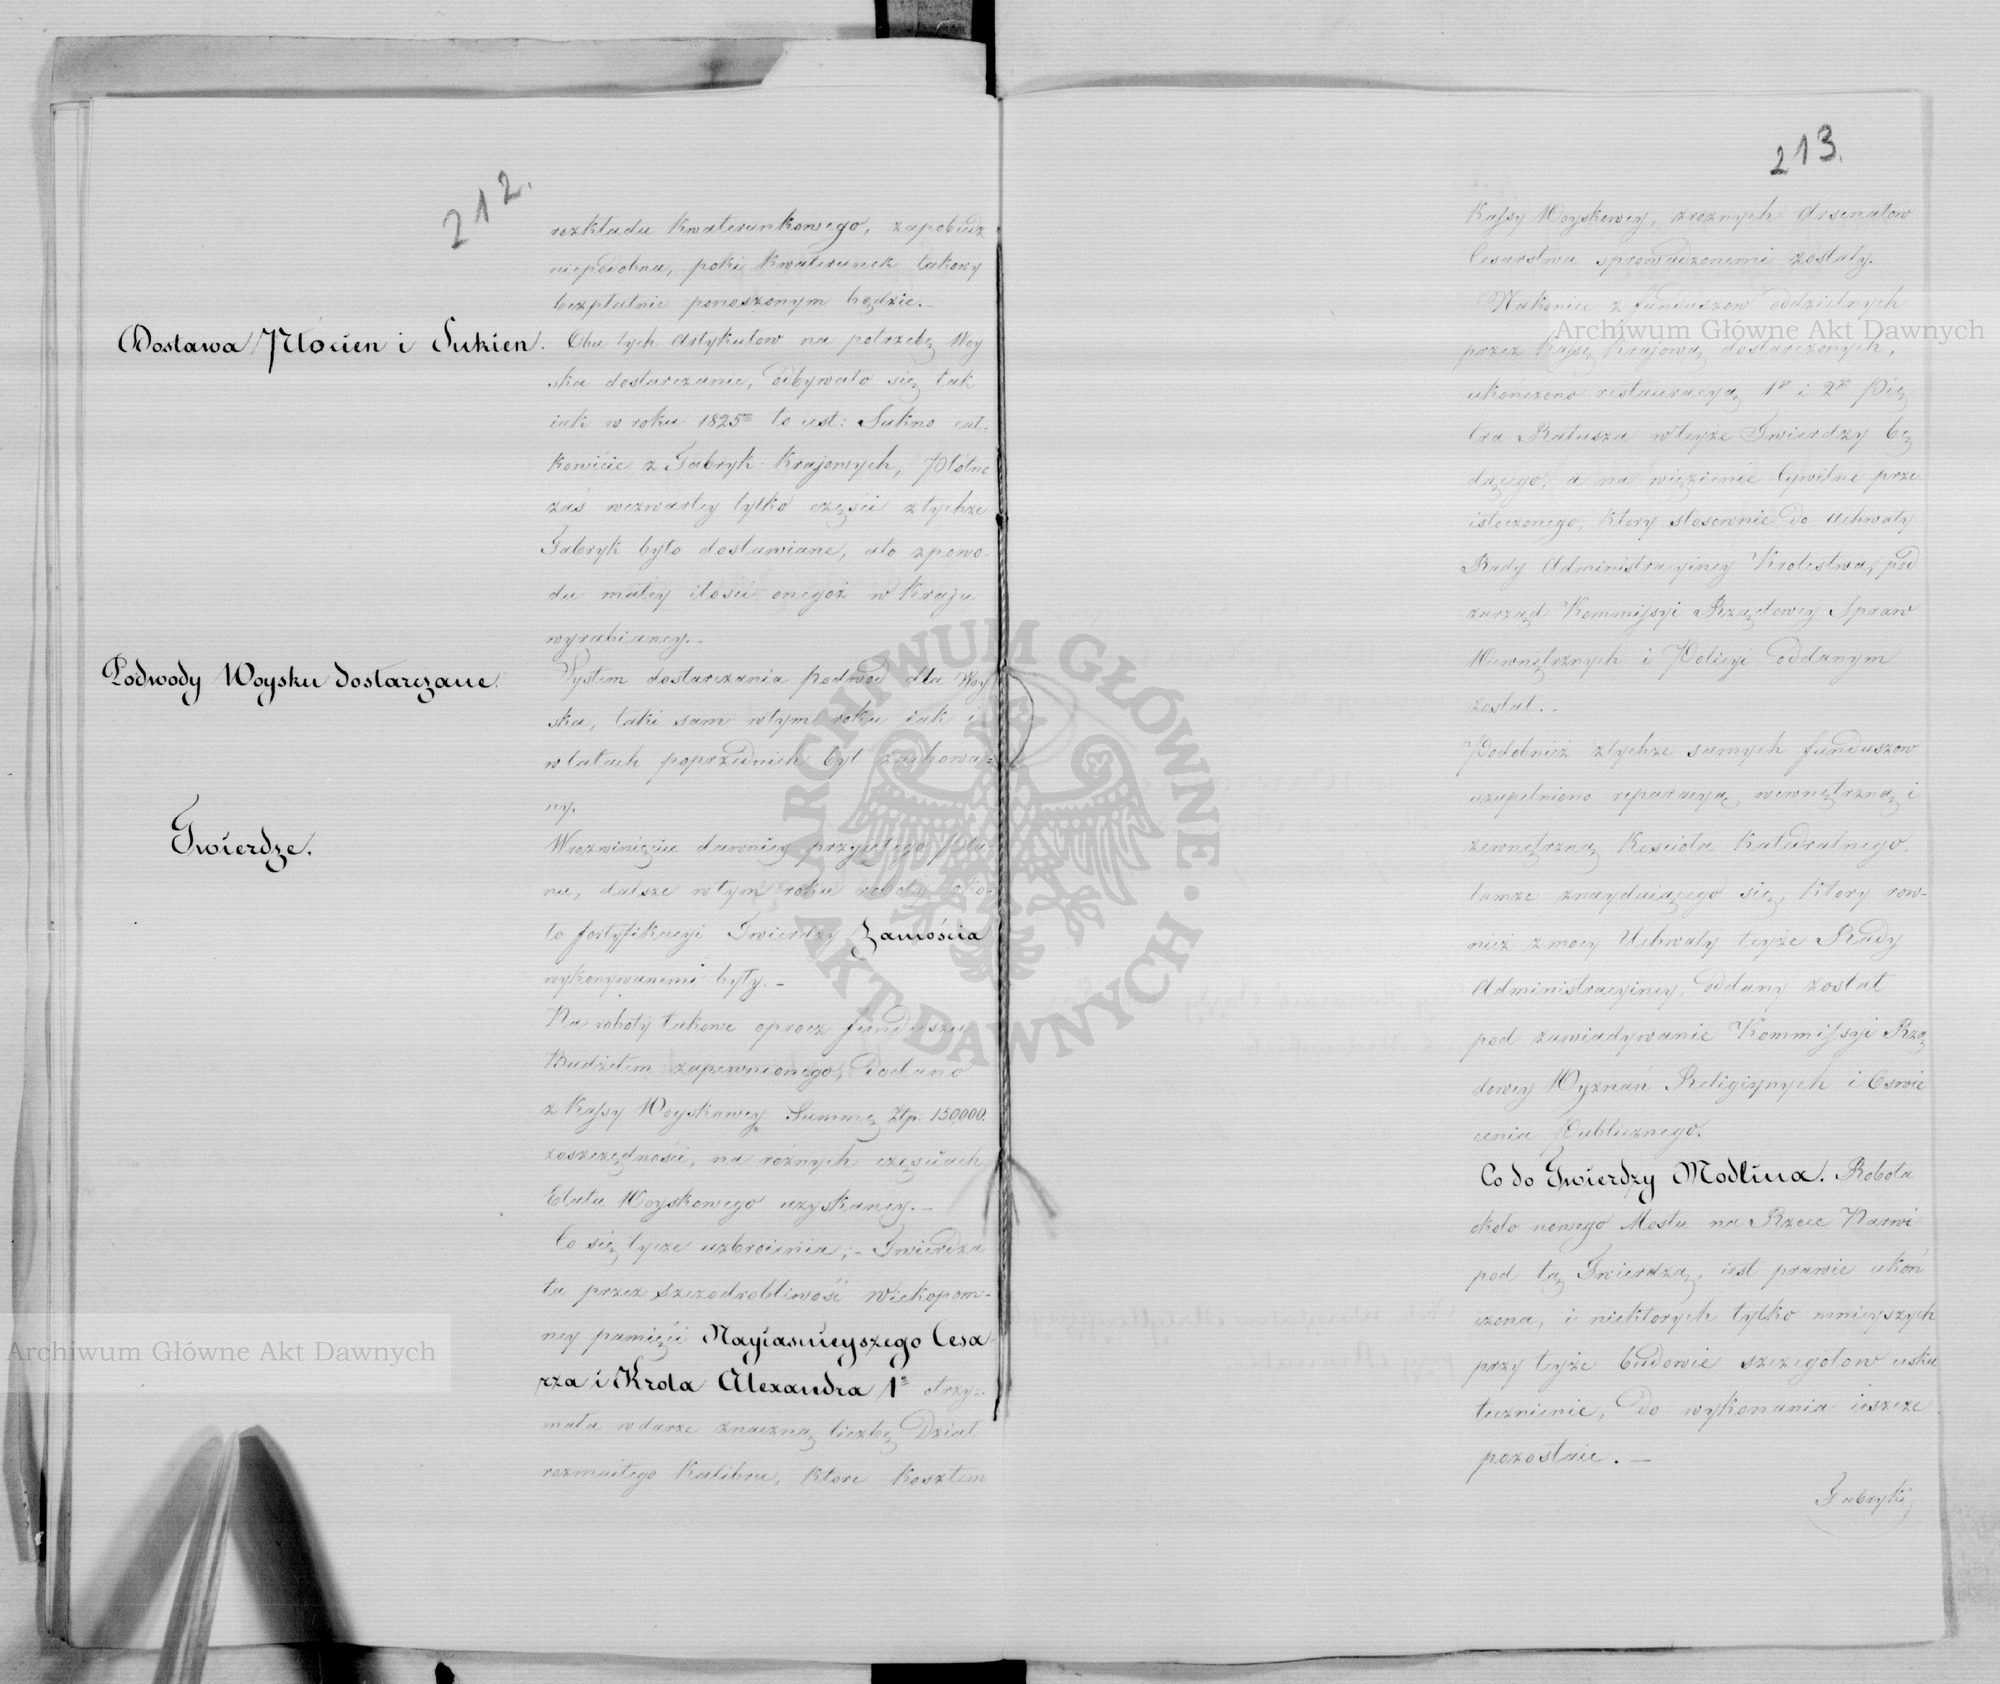 212.
rozkładu kwaterunkowego, zapobiedz
niepodobna, poki kwaterunek takowy
bezpłatnie ponoszonym będzie.–
Dostawa Płocien i Sukien.
Obu tych Artykułow na potrzebę Woy
ska dostarczanie, odbywało się tak
iak w roku 1825m to iest: Sukno cał-
kowicie z Fabryk Krajowych, Płótno
zaś wczwartey tylko części ztychże
Fabryk było dostawiane, ato zpowo-
du małey ilości onegoż w Kraju
wyrabianey.–
Podwody Woysku dostarczane.
System dostarczania podwod dla Woy
ska, taki sam wtym roku iak i
wlatach poprzednich był zachowa-
ny.
Twierdze.
Wrozwinięciu dawniey przyjętego Pla-
nu, dalsze wtym roku roboty oko-
ło fortyfikacyi Twierdzy Zamościa
wykonywanemi były.–
Na roboty takowe oprocz funduszu
Budżetem zapewnionego, dodano
z Kassy Woyskowey Summę Złp. 150,000.
zoszczędności, na rożnych częściach
Etatu Woyskowego uzyskaney.–
Co się tycze uzbroienia;– Twierdza
ta przez szczodrobliwość wiekopom-
ney pamięci Nayiaśnieyszego Cesa
rza i Krola Alexandra 1o otrzy-
mała wdarze znaczną liczbę Dział
rozmaitego Kalibru, ktore kosztem
213.
Kassy Woyskowey, zrożnych Arsenałow
Cesarstwa sprowadzonemi zostały.
Nakoniec z funduszow oddzielnych
przez Kassę Krajową dostarczonych,
ukończono restauracyą 1o i 2o Pię
tra Ratusza wteyże Twierdzy bę
dącego, a na więzienie Cywilne prze
istoczonego, ktory stosownie do Uchwały
Rady Administracyiney Krolestwa, pod
zarząd Kommissyi Rządowey Spraw
Wewnętrznych i Policyi oddanym
został.–
Podobnież ztychże samych funduszow
uzupełniono reparacyą wewnętrzną i
zewnętrzną Kościoła Katedralnego,
tamże znayduiącego się, ktory row-
nież zmocy Uchwały teyże Rady
Administracyiney, oddany został
pod zawiadywanie Kommissyi Rzą
dowey Wyznań Religiynych i Oświe
cenia Publicznego.
Co do Twierdzy Modlina. Robota
około nowego Mostu na Rzece Narwi
pod tą Twierdzą, iest prawie ukoń
czona, i niektorych tylko mnieyszych
przy teyże budowie szczegołow usku
tecznienie, do wykonania ieszcze
pozostaie.–
Fabryki
Archiwum Główne Akt Dawnych
Archiwum Główne Akt Dawnych
ARCHIWUM GŁÓWNE AKT DAWNYCH